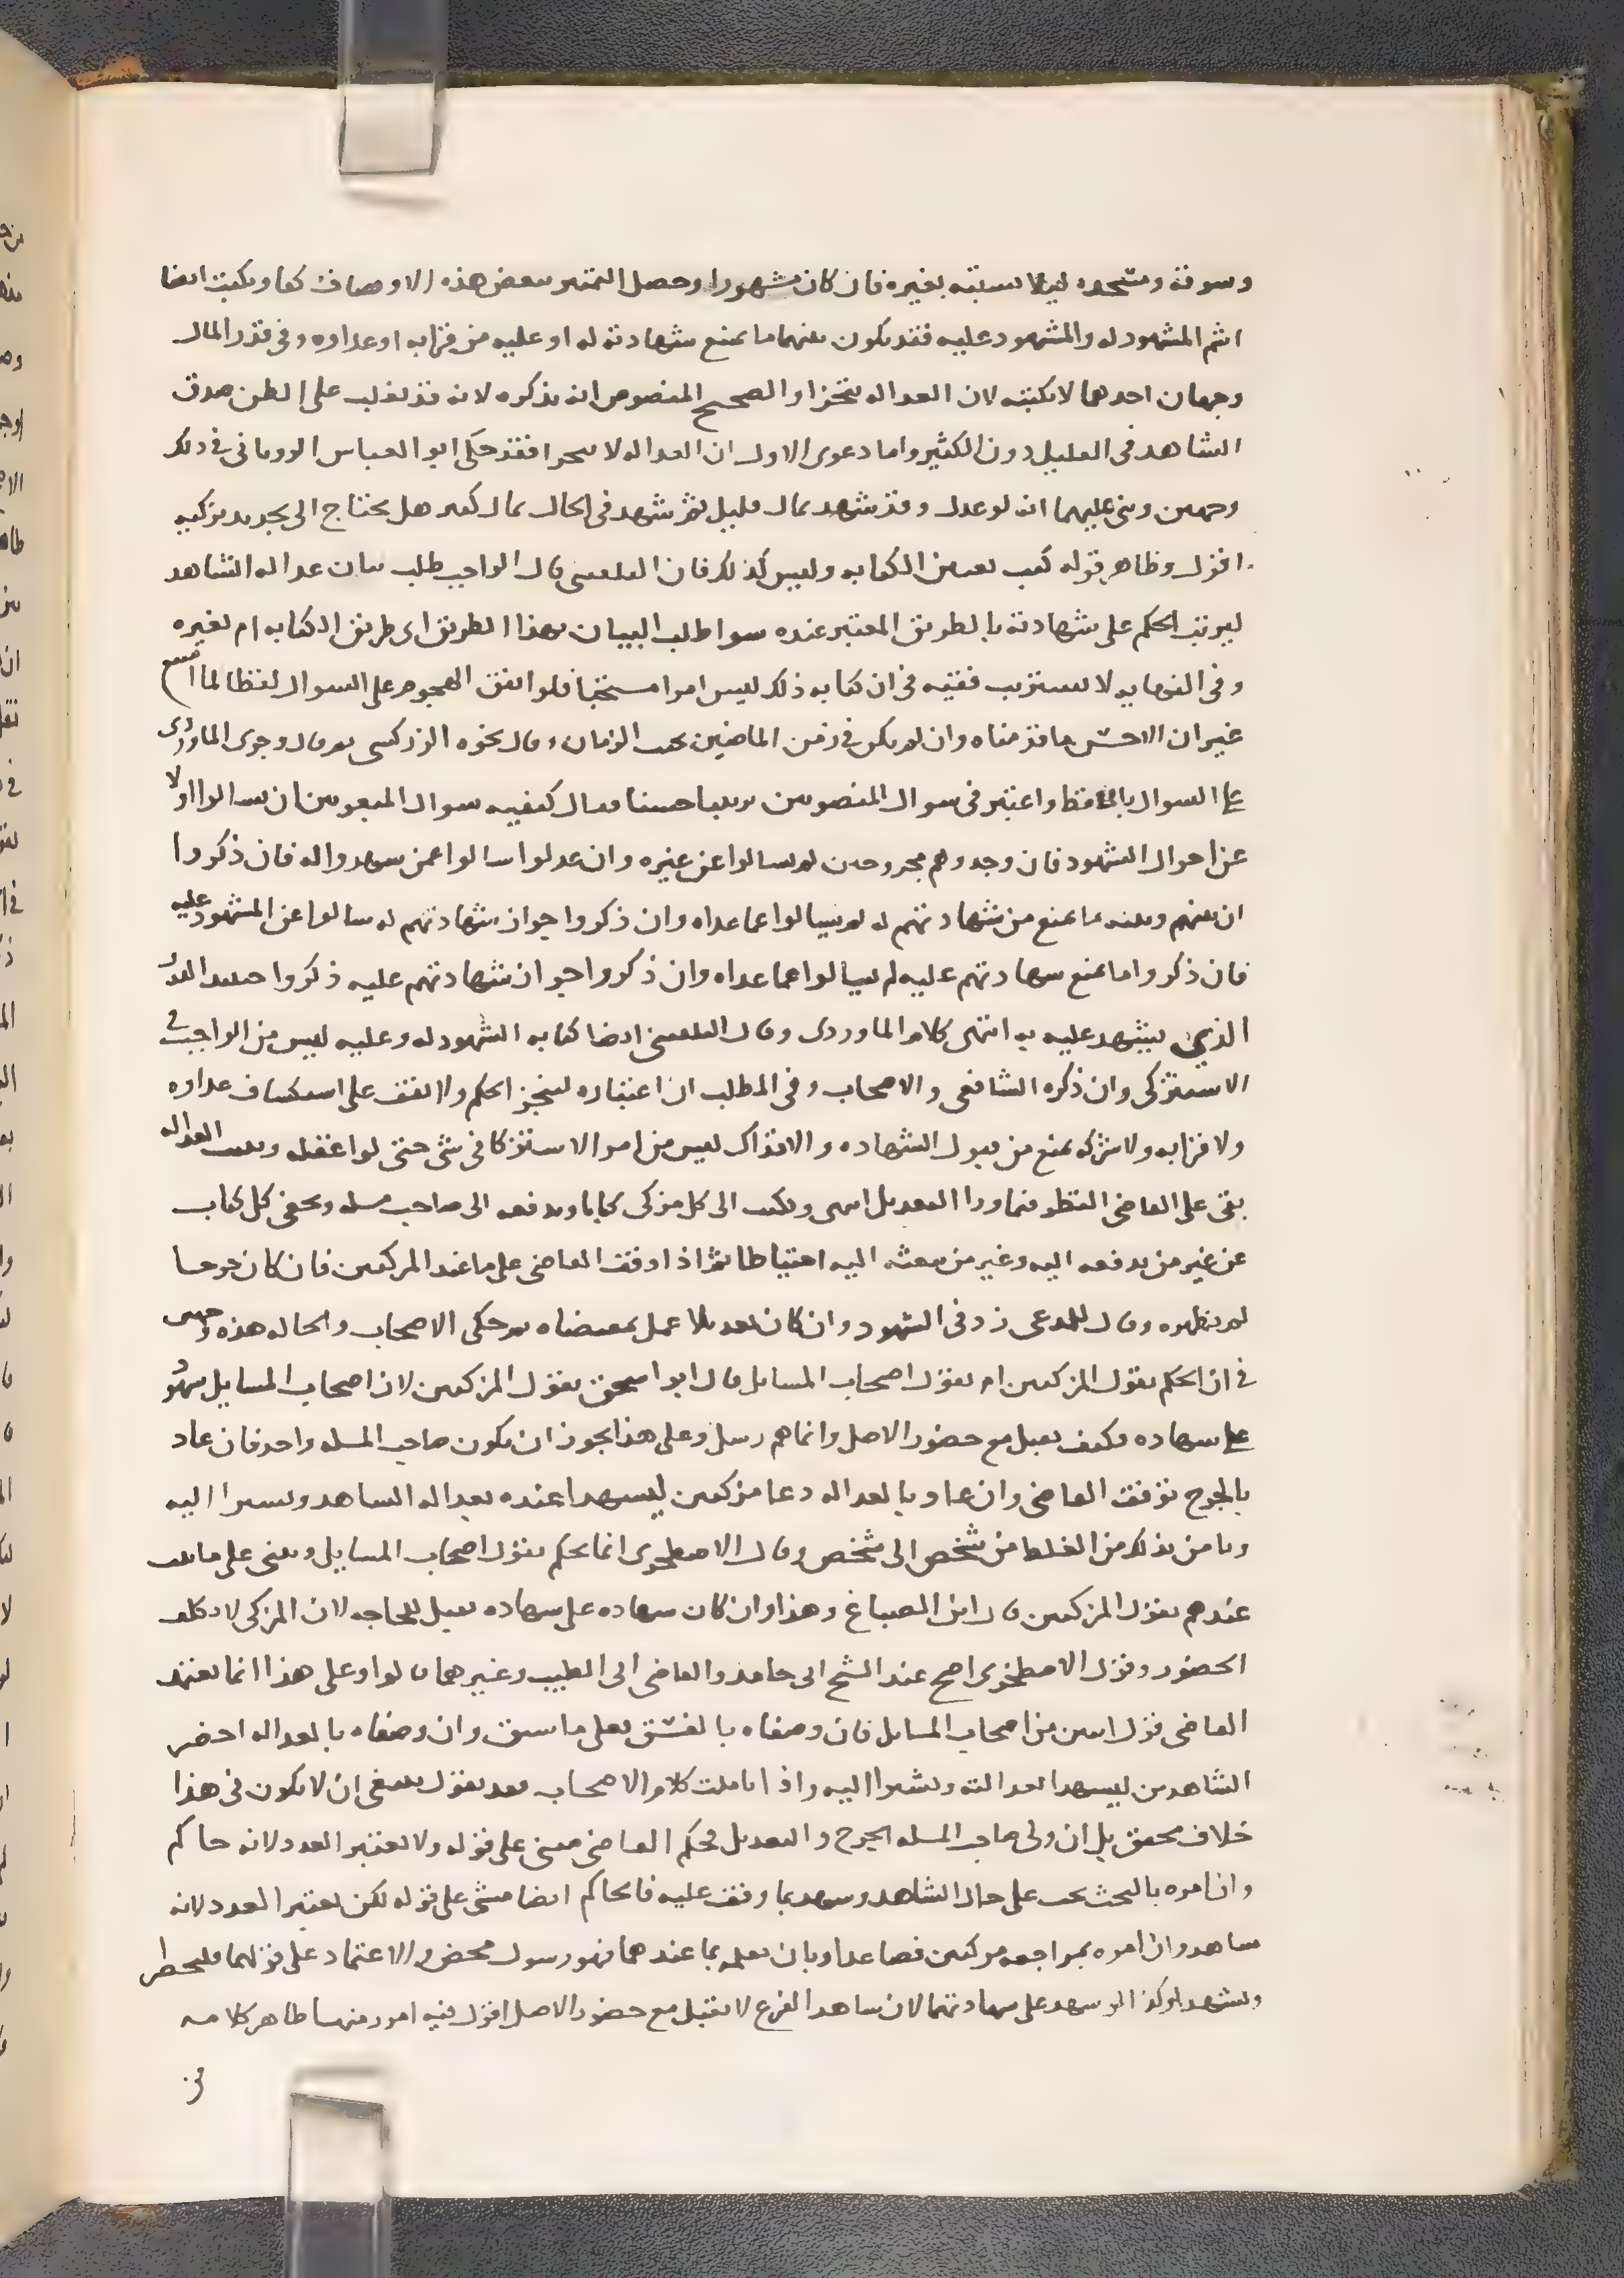 وسوقه ومسجده ليلا يشتبه بغيره فان كان مشهورا وحصل التمييز ببعض هذه الاوصاف كفا ويكتب ايضا
اسم المشهود له والمشهود عليه فقد يكون بينهما ما يمنع شهادته له او عليه من قرابه او عداوه وفي قدر المال
وجهان احدهما لا يكتبه لان العداله لا تتجزا والصحيح المنصوص انه يذكره لانه قد يغلب على الظن صدق
الشاهد في القليل دون الكثير واما دعوى الاول ان العداله لا تتجزا فقد حكى ابو العباس الروياني في ذلك
وجهين وبنى عليهما انه لو عدل وقد شهد بمال قليل ثم شهد في الحال بمال كثير هل يحتاج الى تجديد تزكيه
اقول وظاهر قوله كتب تعين الكتابه وليس كذلك فان البلقيني قال الواجب طلب بيان عداله الشاهد
ليرتب الحكم على شهادته بالطريق المعتبر عنده سوا طلب البيان بهذا الطريق اي طريق الكتابه ام بغيره
وفي النهايه لا يستريب فقيه في ان كتابه ذلك ليس امرا مستحقا فلو اتفق الهجوم على السوال لفظا لما امتنع
غير ان الاحسن ما قدمناه وان لم يكن في زمن الماضين بحسب الزمان وقال نحوه الزركشي ثم قال وجرى الماوردي
على السوال باللفظ واعتبر في سوال المنصوبين ترتيبا حسنا فقال كيفيه سوال المبعوثين ان يسالوا اولا
عن احوال الشهود فان وجدوهم مجروحين لم يسالوا عن غيره وان عدلوا سالوا عمن شهدوا له فان ذكروا
ان بينهم وبينه ما يمنع من شهادتهم له لم يسالوا عما عداه وان ذكروا جواز شهادتهم له سالوا عن المشهود عليه
فان ذكروا ما يمنع شهادتهم عليه لم يسالوا عما عداه وان ذكروا جواز شهادتهم عليه ذكروا حينئذ القدر
الذي يشهد عليه به انتهى كلام الماوردي وقال البلقيني ايضا كتابه المشهود له وعليه ليس من الواجب في
الاستزكى وان ذكره الشافعي والاصحاب وفي المطلب ان اعتباره لتنجز الحكم ولا يقف على استكشاف عداوه
ولا قرابه ولا شركه يمنع من قبول الشهاده والا فذاك ليس من امر الاستزكا في شي حتى لو اغفله وثبت العداله
بقى على القاضي النظر فيما ورا التعديل انتهى ويكتب الى كل مزكى كتابا ويدفعه الى صاحب مسله ويخفي كل كتاب
عن غير من يدفعه اليه وغير من يبعثه اليه احتياطا ثم اذا وقف القاضي على ما عند المزكيين فان كان جرحا
لم يظهره وقال للمدعي زد في الشهود وان كان تعديلا عمل بمقتضاه ثم حكى الاصحاب والحاله هذه وجهين
في ان الحكم بقول المزكيين ام بقول اصحاب المسايل قال ابو اسحق بقول المزكيين لان اصحاب المسايل شهود
على شهاده فكيف يقبل مع حضور الاصل وانما هم رسل وعلى هذا يجوز ان يكون صاحب المسله واحد فان عاد
بالجرح توقف القاضي وان عاد بالعداله دعا مزكيين ليشهدا عنده بعداله الشاهد ويشيرا اليه
ويامن بذلك من الغلط من شخص الى شخص وقال الاصطخري انما يحكم بقول اصحاب المسايل ويبنى على ما ثبت
عندهم بقول المزكيين قال ابن الصباغ وهذا وان كان شهاده على شهاده يقبل للحاجه لان المزكي لا يكلف
الحضور وقول الاصطخري اصح عند الشيخ ابي حامد والقاضي ابي الطيب وغيرهما قالوا وعلى هذا انما يعتمد
القاضي قول اثنين من اصحاب المسايل فان وصفاه بالفسق فعلى ما سبق وان وصفاه بالعداله احضر
الشاهدين ليشهدا بعدالته ويشيرا اليه واذا تاملت كلام الاصحاب فقد يقول ينبغي ان لا يكون في هذا
خلاف محقق بل ان ولى صاحب المسله الجرح والتعديل فحكم القاضي مبني على قوله ولا يعتبر العدد لانه حاكم
وان امره بالبحث بحث على حال الشاهد وشهد بما وقف عليه فالحاكم ايضا مبني على قوله لكن يعتبر العدد لانه
شاهد وان امره بمراجعه مزكيين فصاعدا وبان يعلمه بما عندهما فهو رسول محض والاعتماد على قولهما فليحضرا
ويشهدا وكذا لو شهد على شهادتهما لان شاهد الفرع لا يقبل مع حضور الاصل اقول فيه امور منها ظاهر كلامه